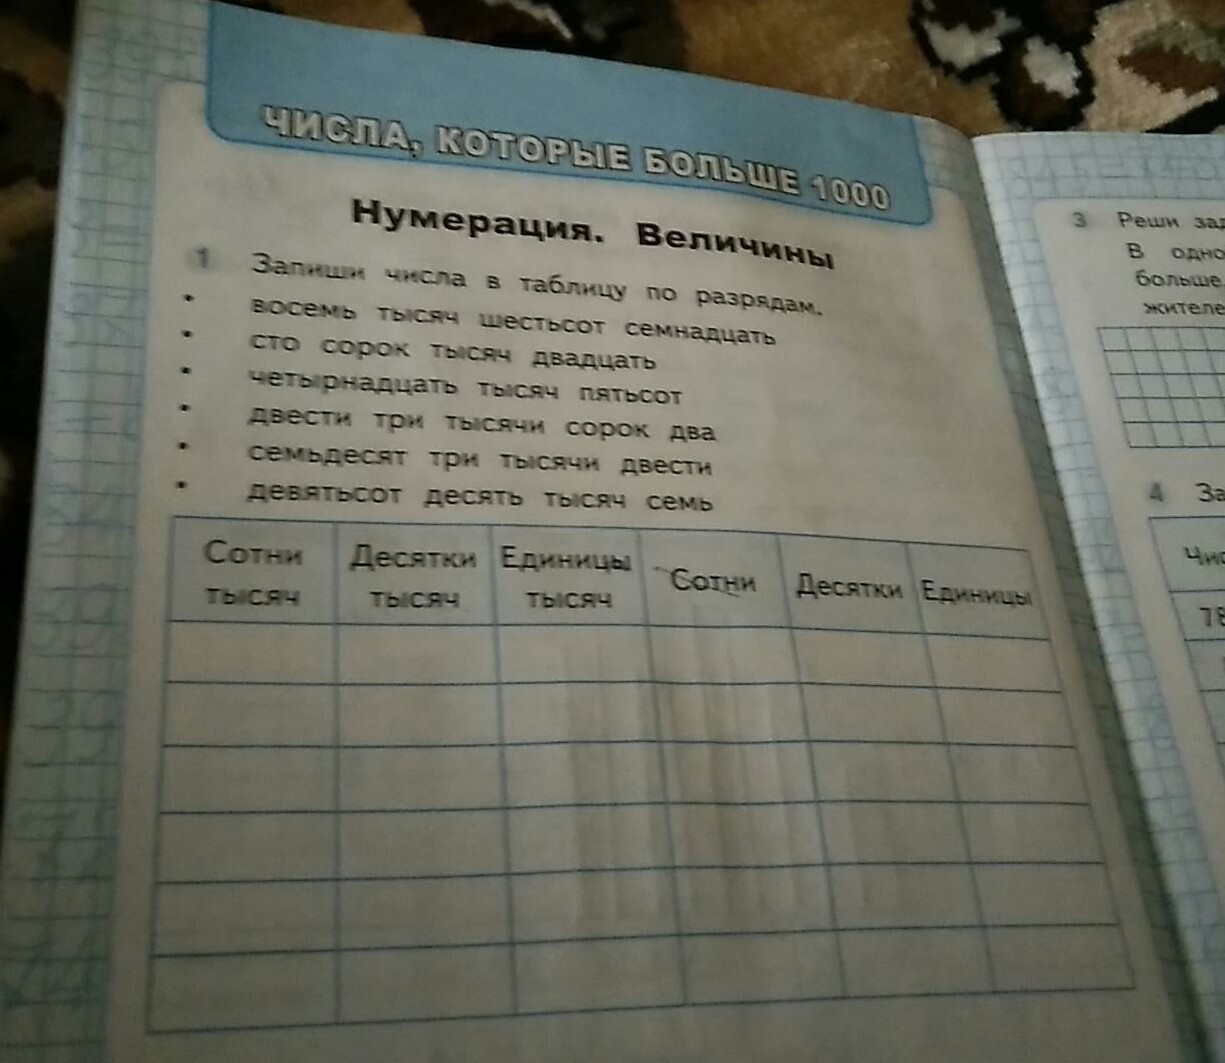 ЧИСЛА, КОТОРЫЕ БОЛЬШЕ 1000
Нумерация. Величины
1 Запиши числа в таблицу по разрядам.
• восемь тысяч шестьсот семнадцать
• сто сорок тысяч двадцать
• четырнадцать тысяч пятьсот
• двести три тысячи сорок два
• семьдесят три тысячи двести
• девятьсот десять тысяч семь
Сотни тысяч
Десятки тысяч
Единицы тысяч
Сотни
Десятки
Единицы
3 Реши
В
больше
жителе
4